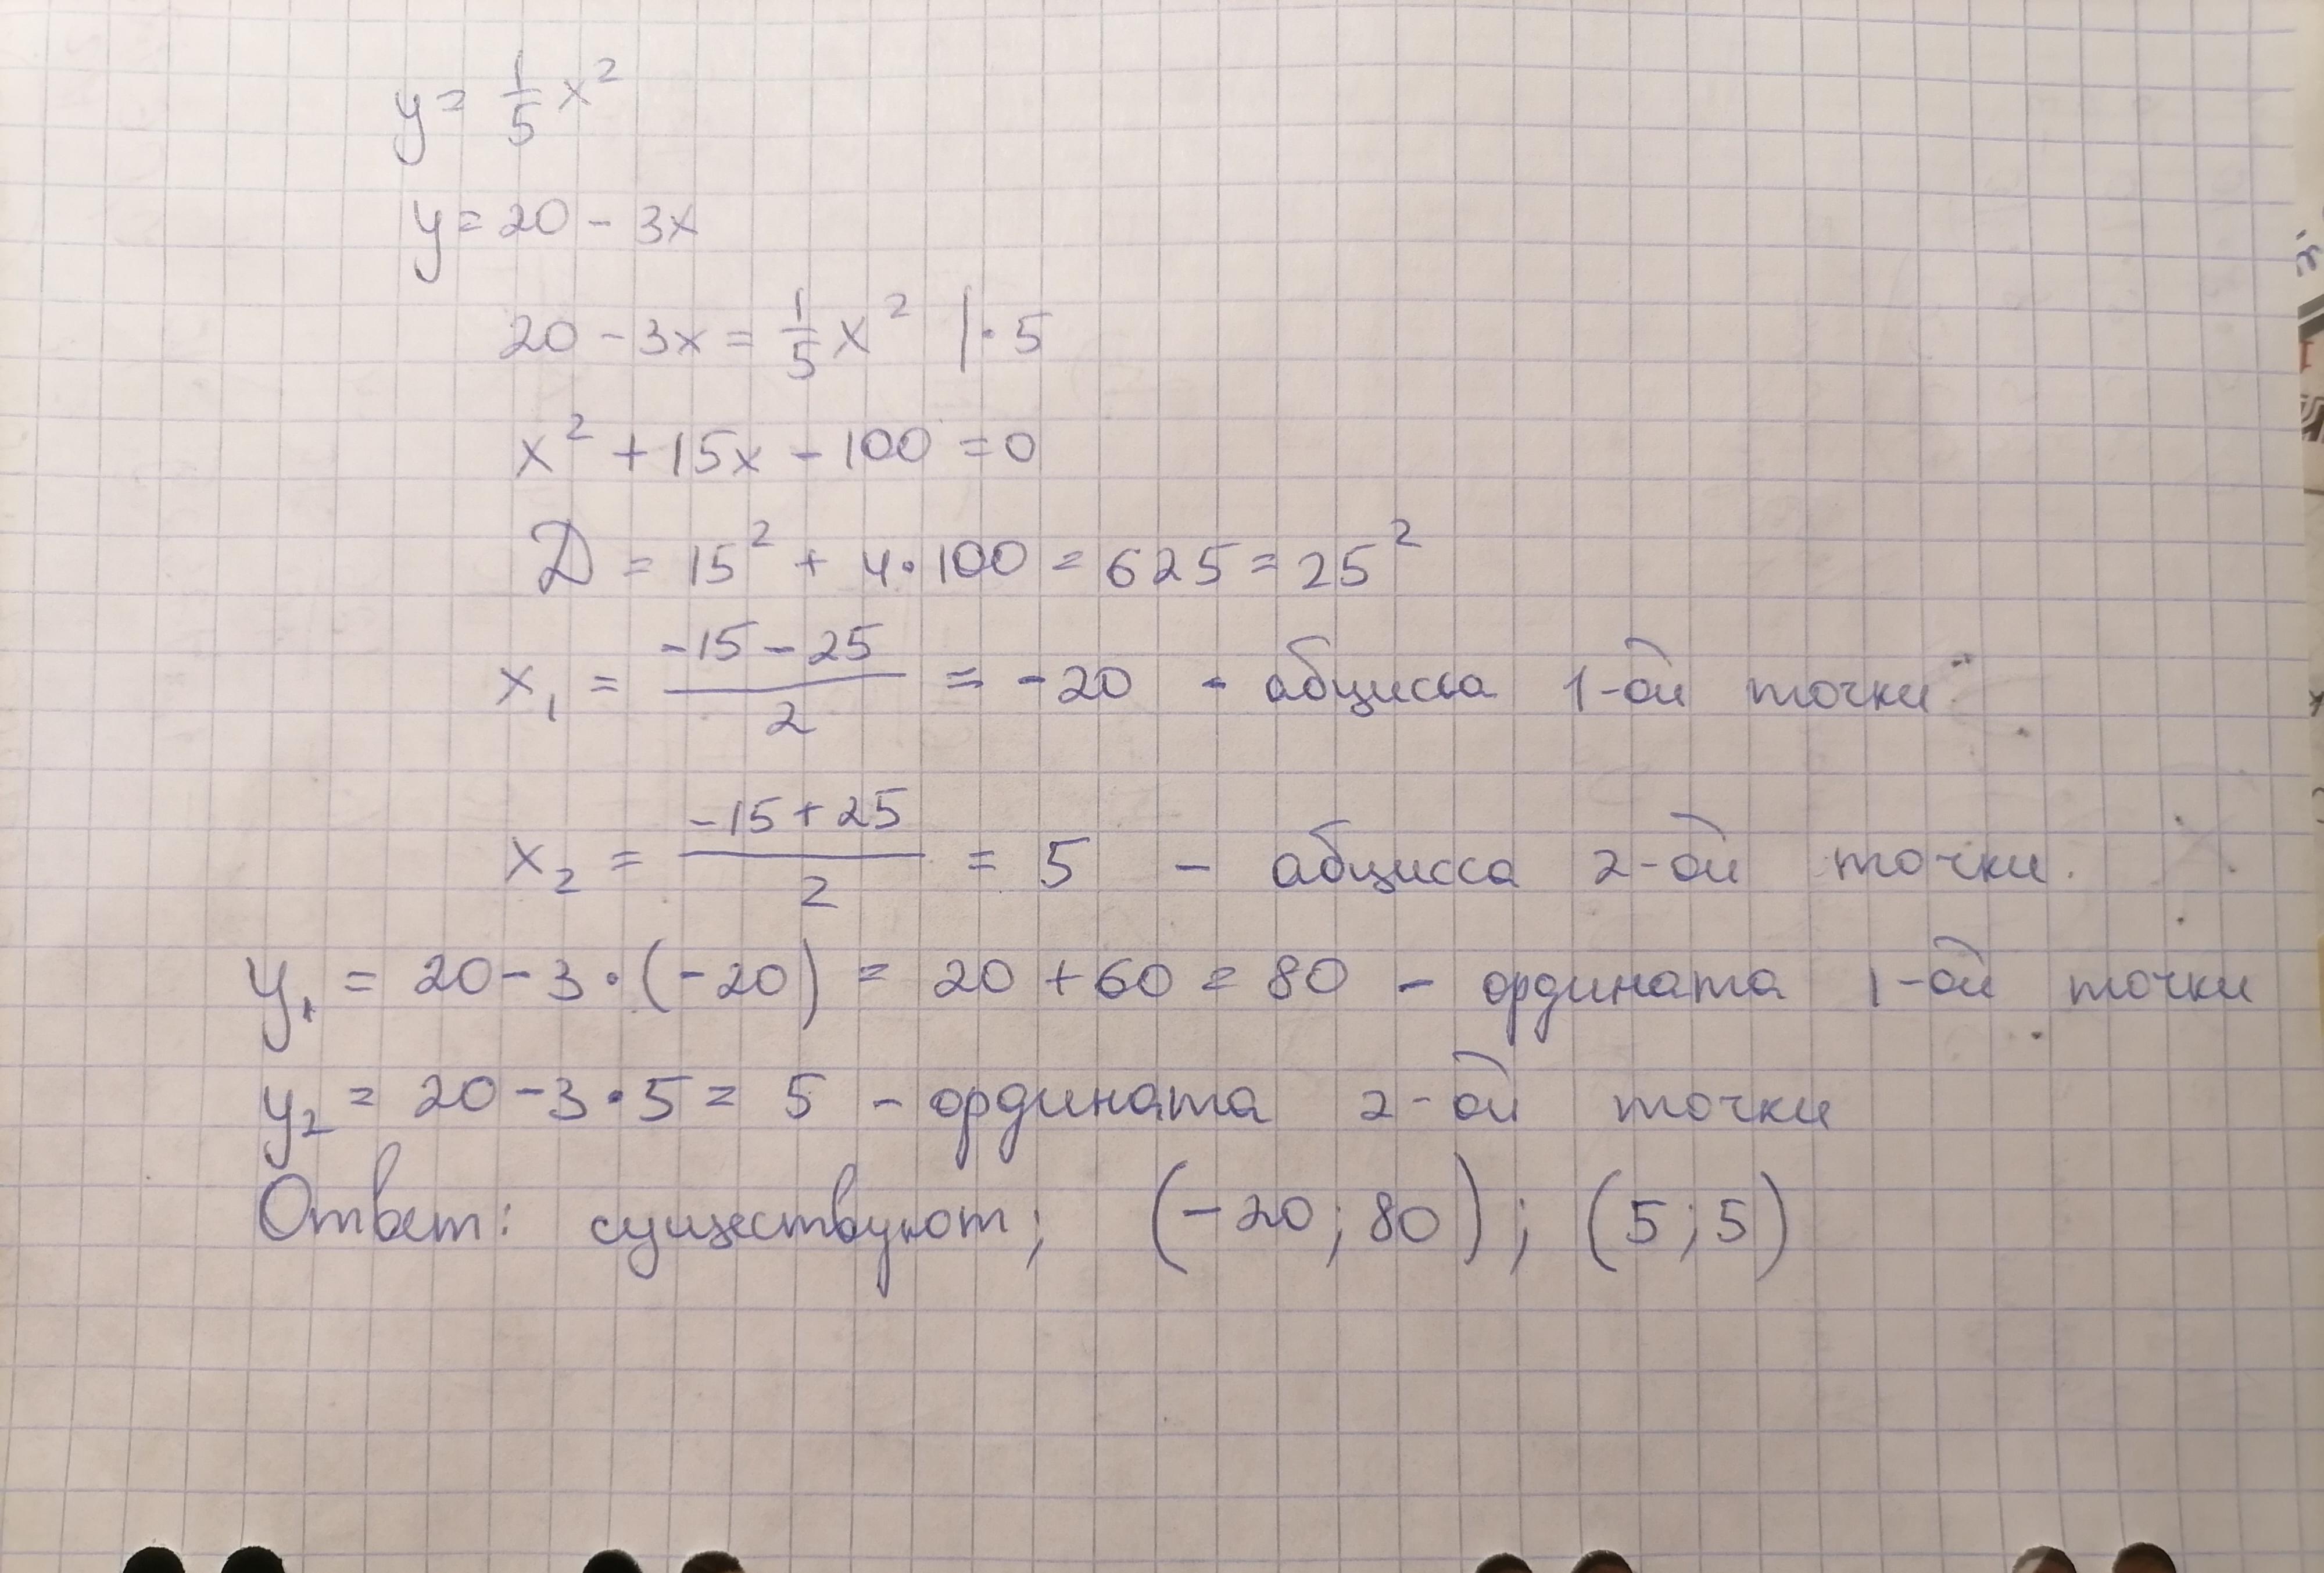 y = 1/5 x²
y = 20 - 3x
20 - 3x = 1/5 x² | · 5
x² + 15x - 100 = 0
D = 15² + 4 · 100 = 625 = 25²
x₁ = (-15 - 25)/2 = -20 - абцисса 1-ой точки
x₂ = (-15 + 25)/2 = 5 - абцисса 2-ой точки.
y₁ = 20 - 3 · (-20) = 20 + 60 = 80 - ордината 1-ой точки
y₂ = 20 - 3 · 5 = 5 - ордината 2-ой точки
Ответ: существуют; (-20; 80); (5; 5)